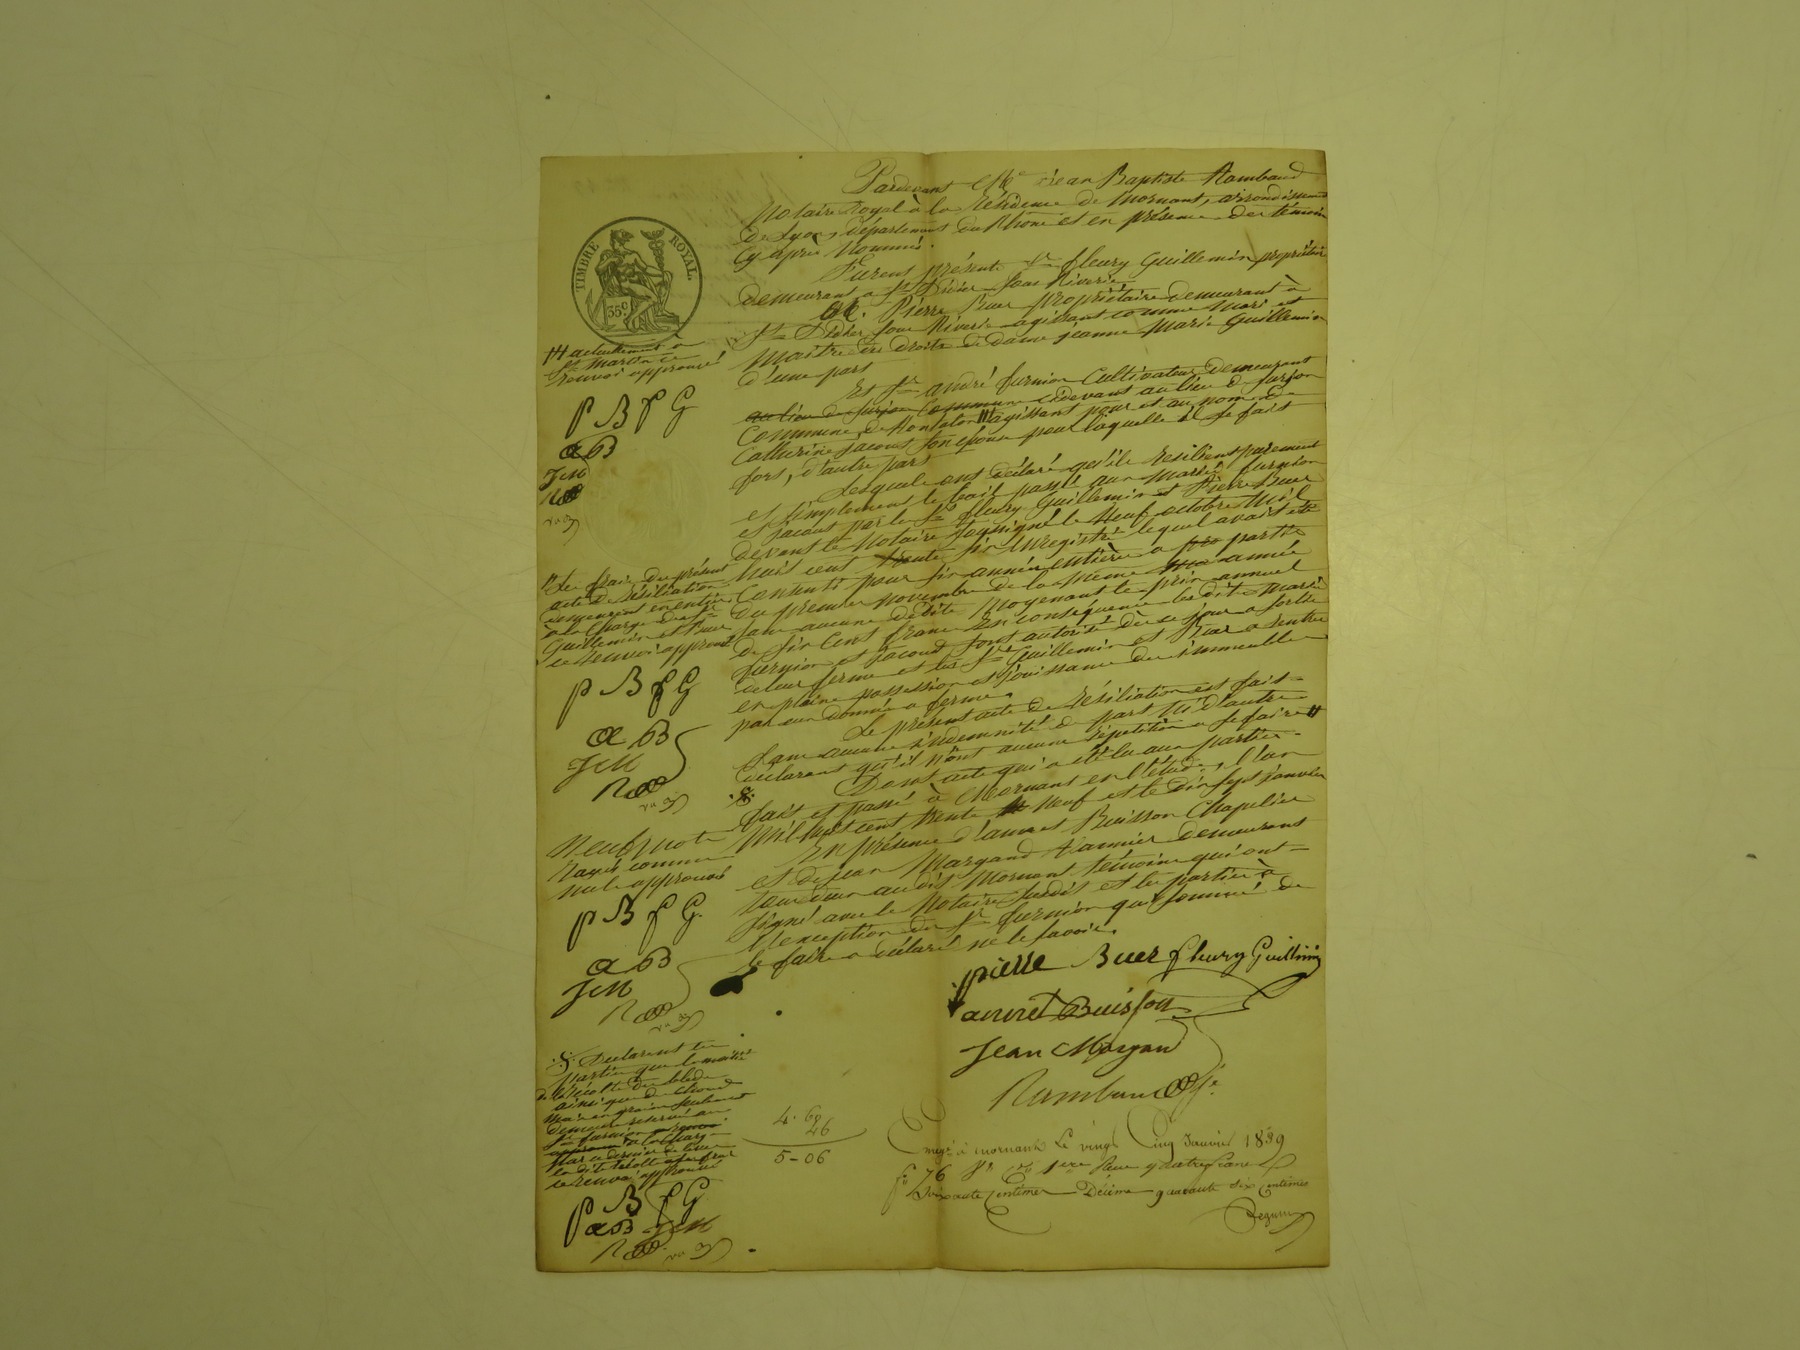 Pardevant Me Jean Baptiste Rambaud
Notaire Royal à la Résidence de Mornant, arrondissement
de Lyon, département du Rhone et en présence des témoins
cy après Nommés.
Furent présents Sr fleury Guillemin propriétaire
demeurant a St Didier sous Riverie
Et Pierre Buer propriétaire demeurant à
St Didier sous Riverie agissant comme Mari et
Maitre des droits de dame jeanne Marie Guillemin
d'une part
Et Sr andré furnion Cultivateur demeurant
au lieu de furjon Commune cidevant au lieu de furjon
Commune de Rontalon agissant pour et au nom de
Catherine jacout son épouse pour laquelle il se fait
fort, d'autre part
Lesquels ont déclaré qu'ils Resilient purement
et simplement le bail passé aux Mariés furnion
et jacout par le Sr fleury Guillemin et Pierre Buer
devant le Notaire soussigné le Neuf octobre Mil
huit cent trente six Enregistré lequel avait été
Consenti pour six années entières a partir
du premier novembre de la même année
sans aucune dédite Moyenant le prix annuel
de six Cent francs En conséquence les dits Mariés
furnion et jacout sont autorisés dès ce jour a sortir
de leur ferme et les Srs Guillemin et Buer a rentrer
en pleine possession et jouissance des immeubles
par eux donnés a ferme.
Le présent acte de Résiliation est fait
sans aucune indemnité de part Ni d'autre
déclarant qu'ils n'ont aucune répétition a se faire
Dont acte qui a été lu aux parties
fait et passé à Mornant en l'étude, l'an
Mil huit cent trente Neuf et le Dix sept janvier
En présence d'annet Buisson Chapelier
et de jean Margand tannier demeurant
tous deux audit Mornant témoins qui ont
signé avec le Notaire susdit et les parties à
l'exception du Sr furnion qui sommé de
le faire a déclaré ne le savoir.
pierre Buer fleury Guillimin
annet Buisson
Jean Margan
Rambaud
TIMBRE ROYAL
35c
actuellement à
St Martin ce
Renvoi approuvé
P B f G
a B
J M
R
Les frais du présent
acte de Résiliation
demeurent en entier
a la Charge des Srs
Guillemin et Buer
ce Renvoi approuvé
P B f G
a B
J M
R
Neuf mots
Rayés comme
nuls approuvés
P B f G.
a B
J M
R
Declarent les
parties que la moitié
de la récolte des bleds
demeure reservé au
Sr furnion
la dite récolte
ce Renvoi approuvé
P B f G
a B J M
R
4. 60
46
5-06
Enregé à mornant Le vingt Cinq Janvier 1839
fo 76 Reçu quatre francs
soixante centimes Décime quarante six centimes